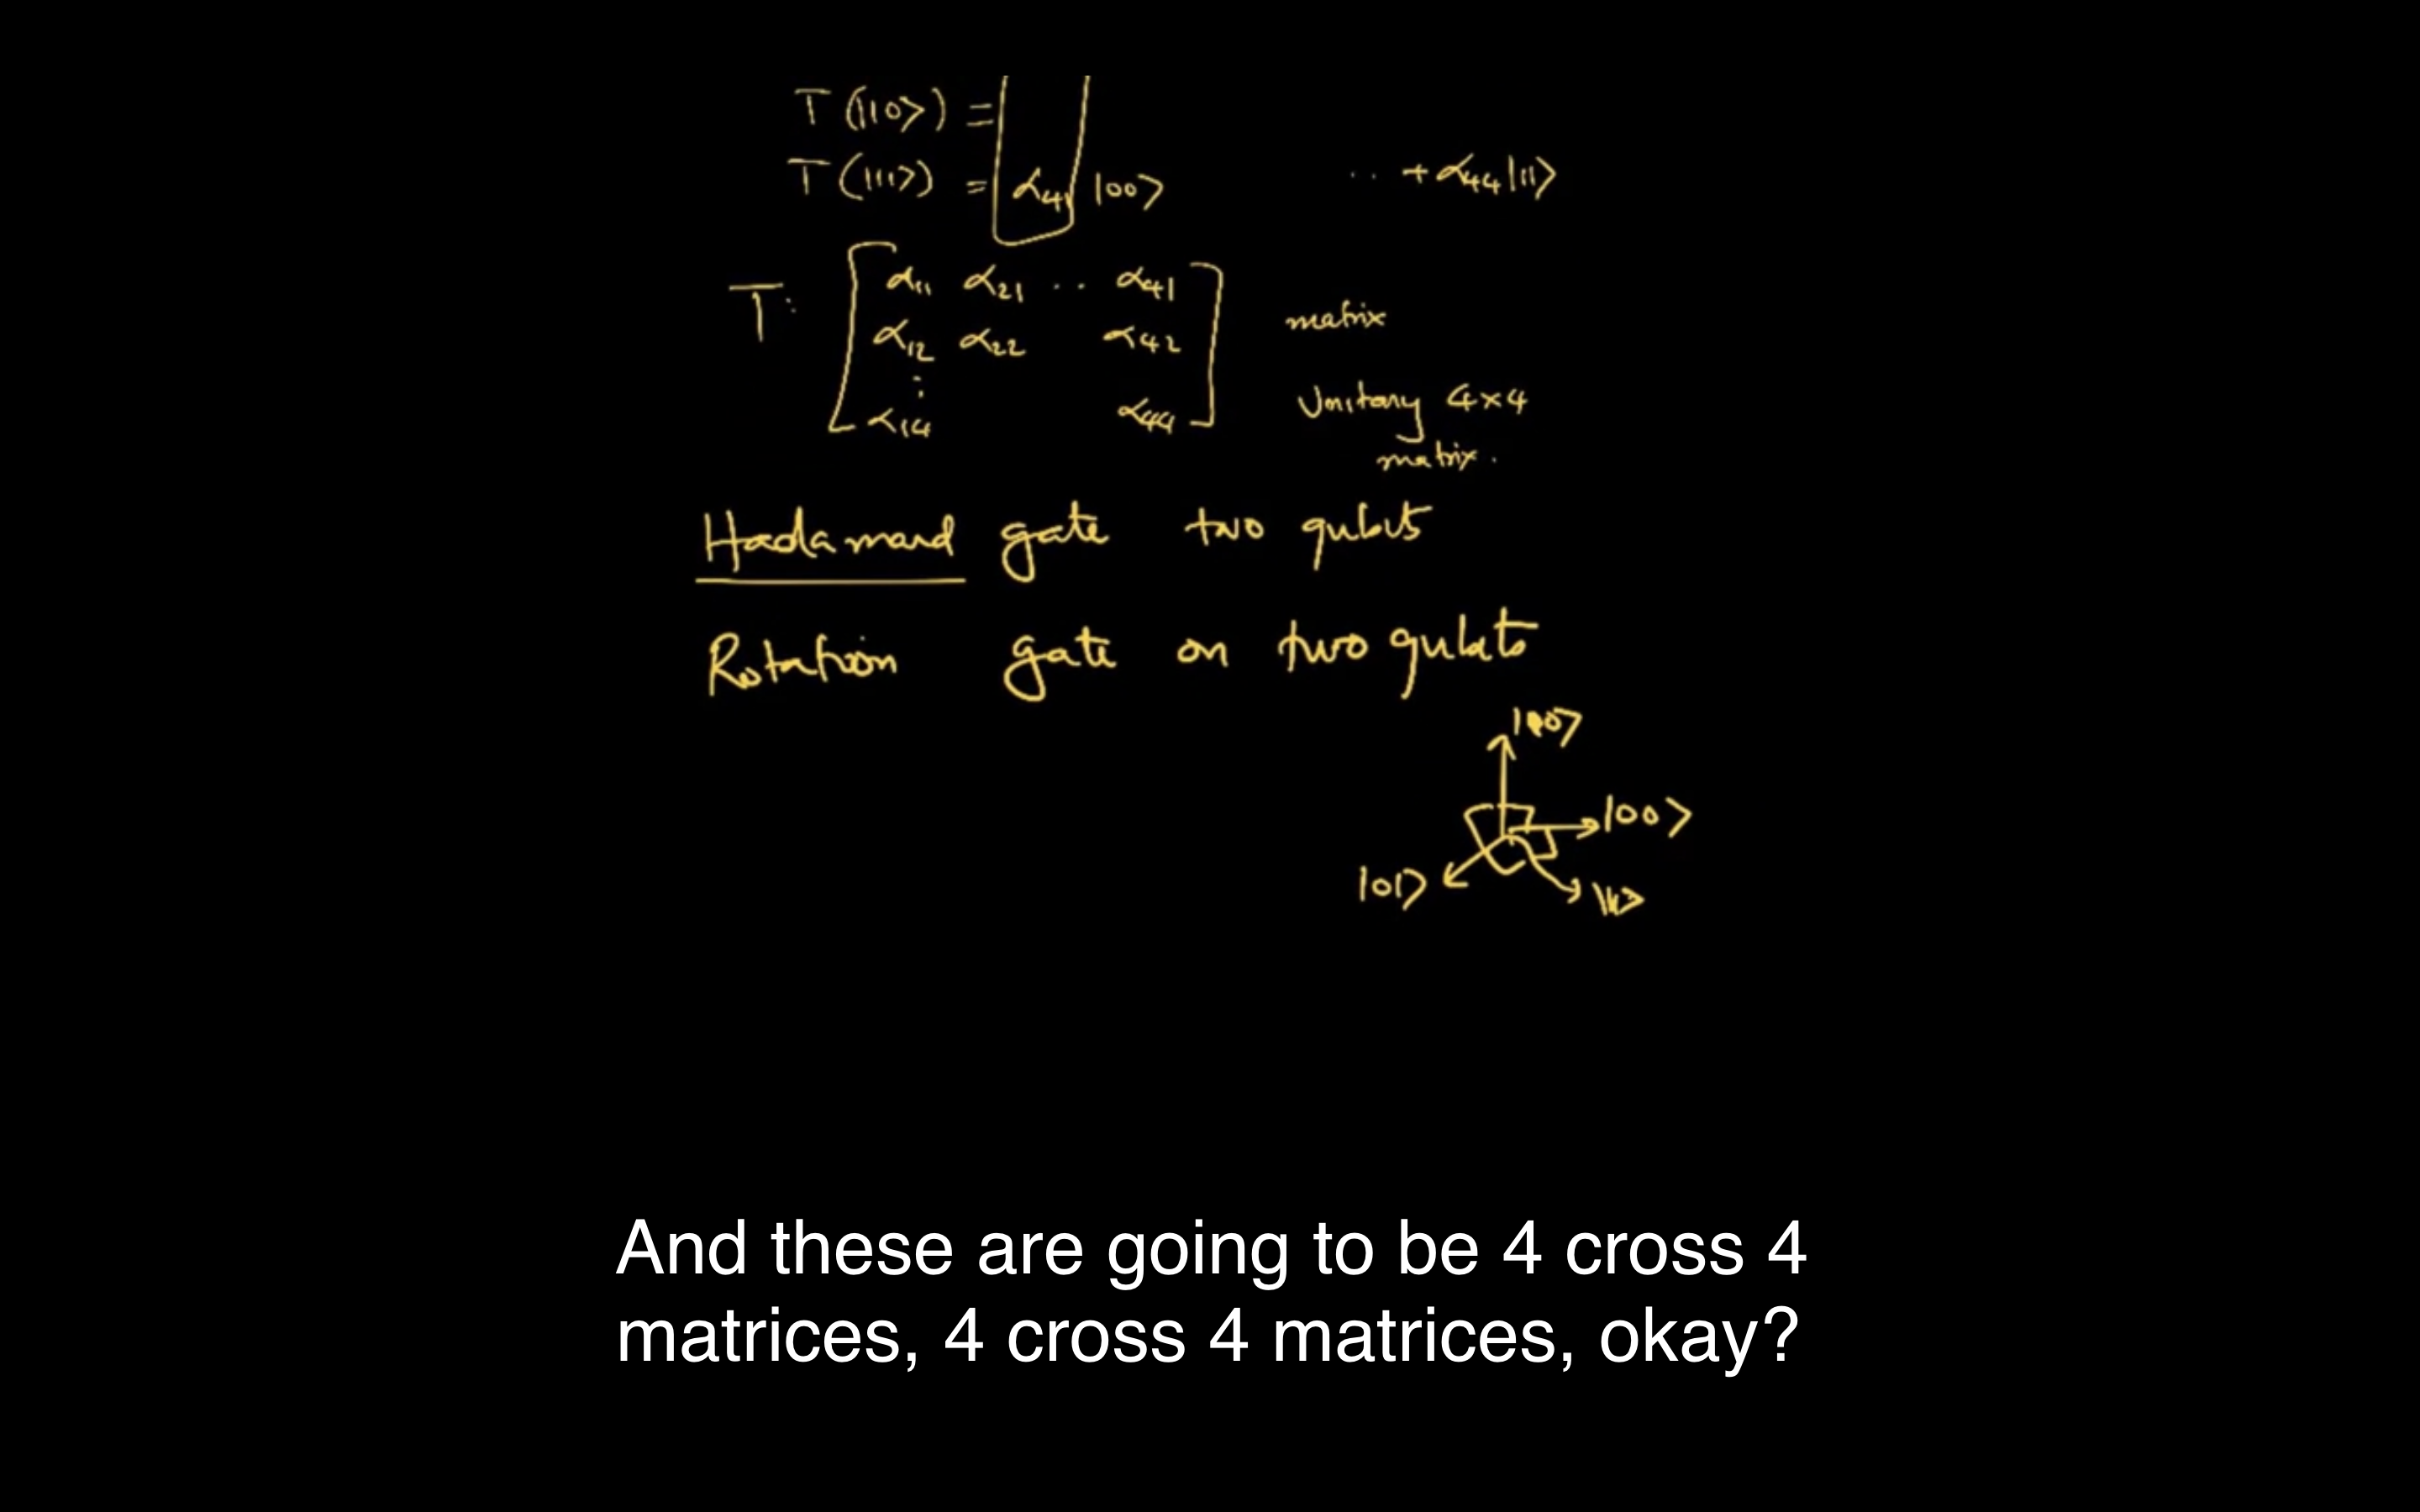 T(|10⟩) =
T(|11⟩) = α₄₁ |00⟩ .. + α₄₄|11⟩
T: α₁₁ α₂₁ .. α₄₁
matrix
α₁₂ α₂₂ α₄₂
⋮
α₁₄ α₄₄
Unitary 4×4
matrix.
Hadamard gate two qubits
Rotation gate on two qubits
|10⟩
|00⟩
|01⟩ |11⟩
And these are going to be 4 cross 4
matrices, 4 cross 4 matrices, okay?